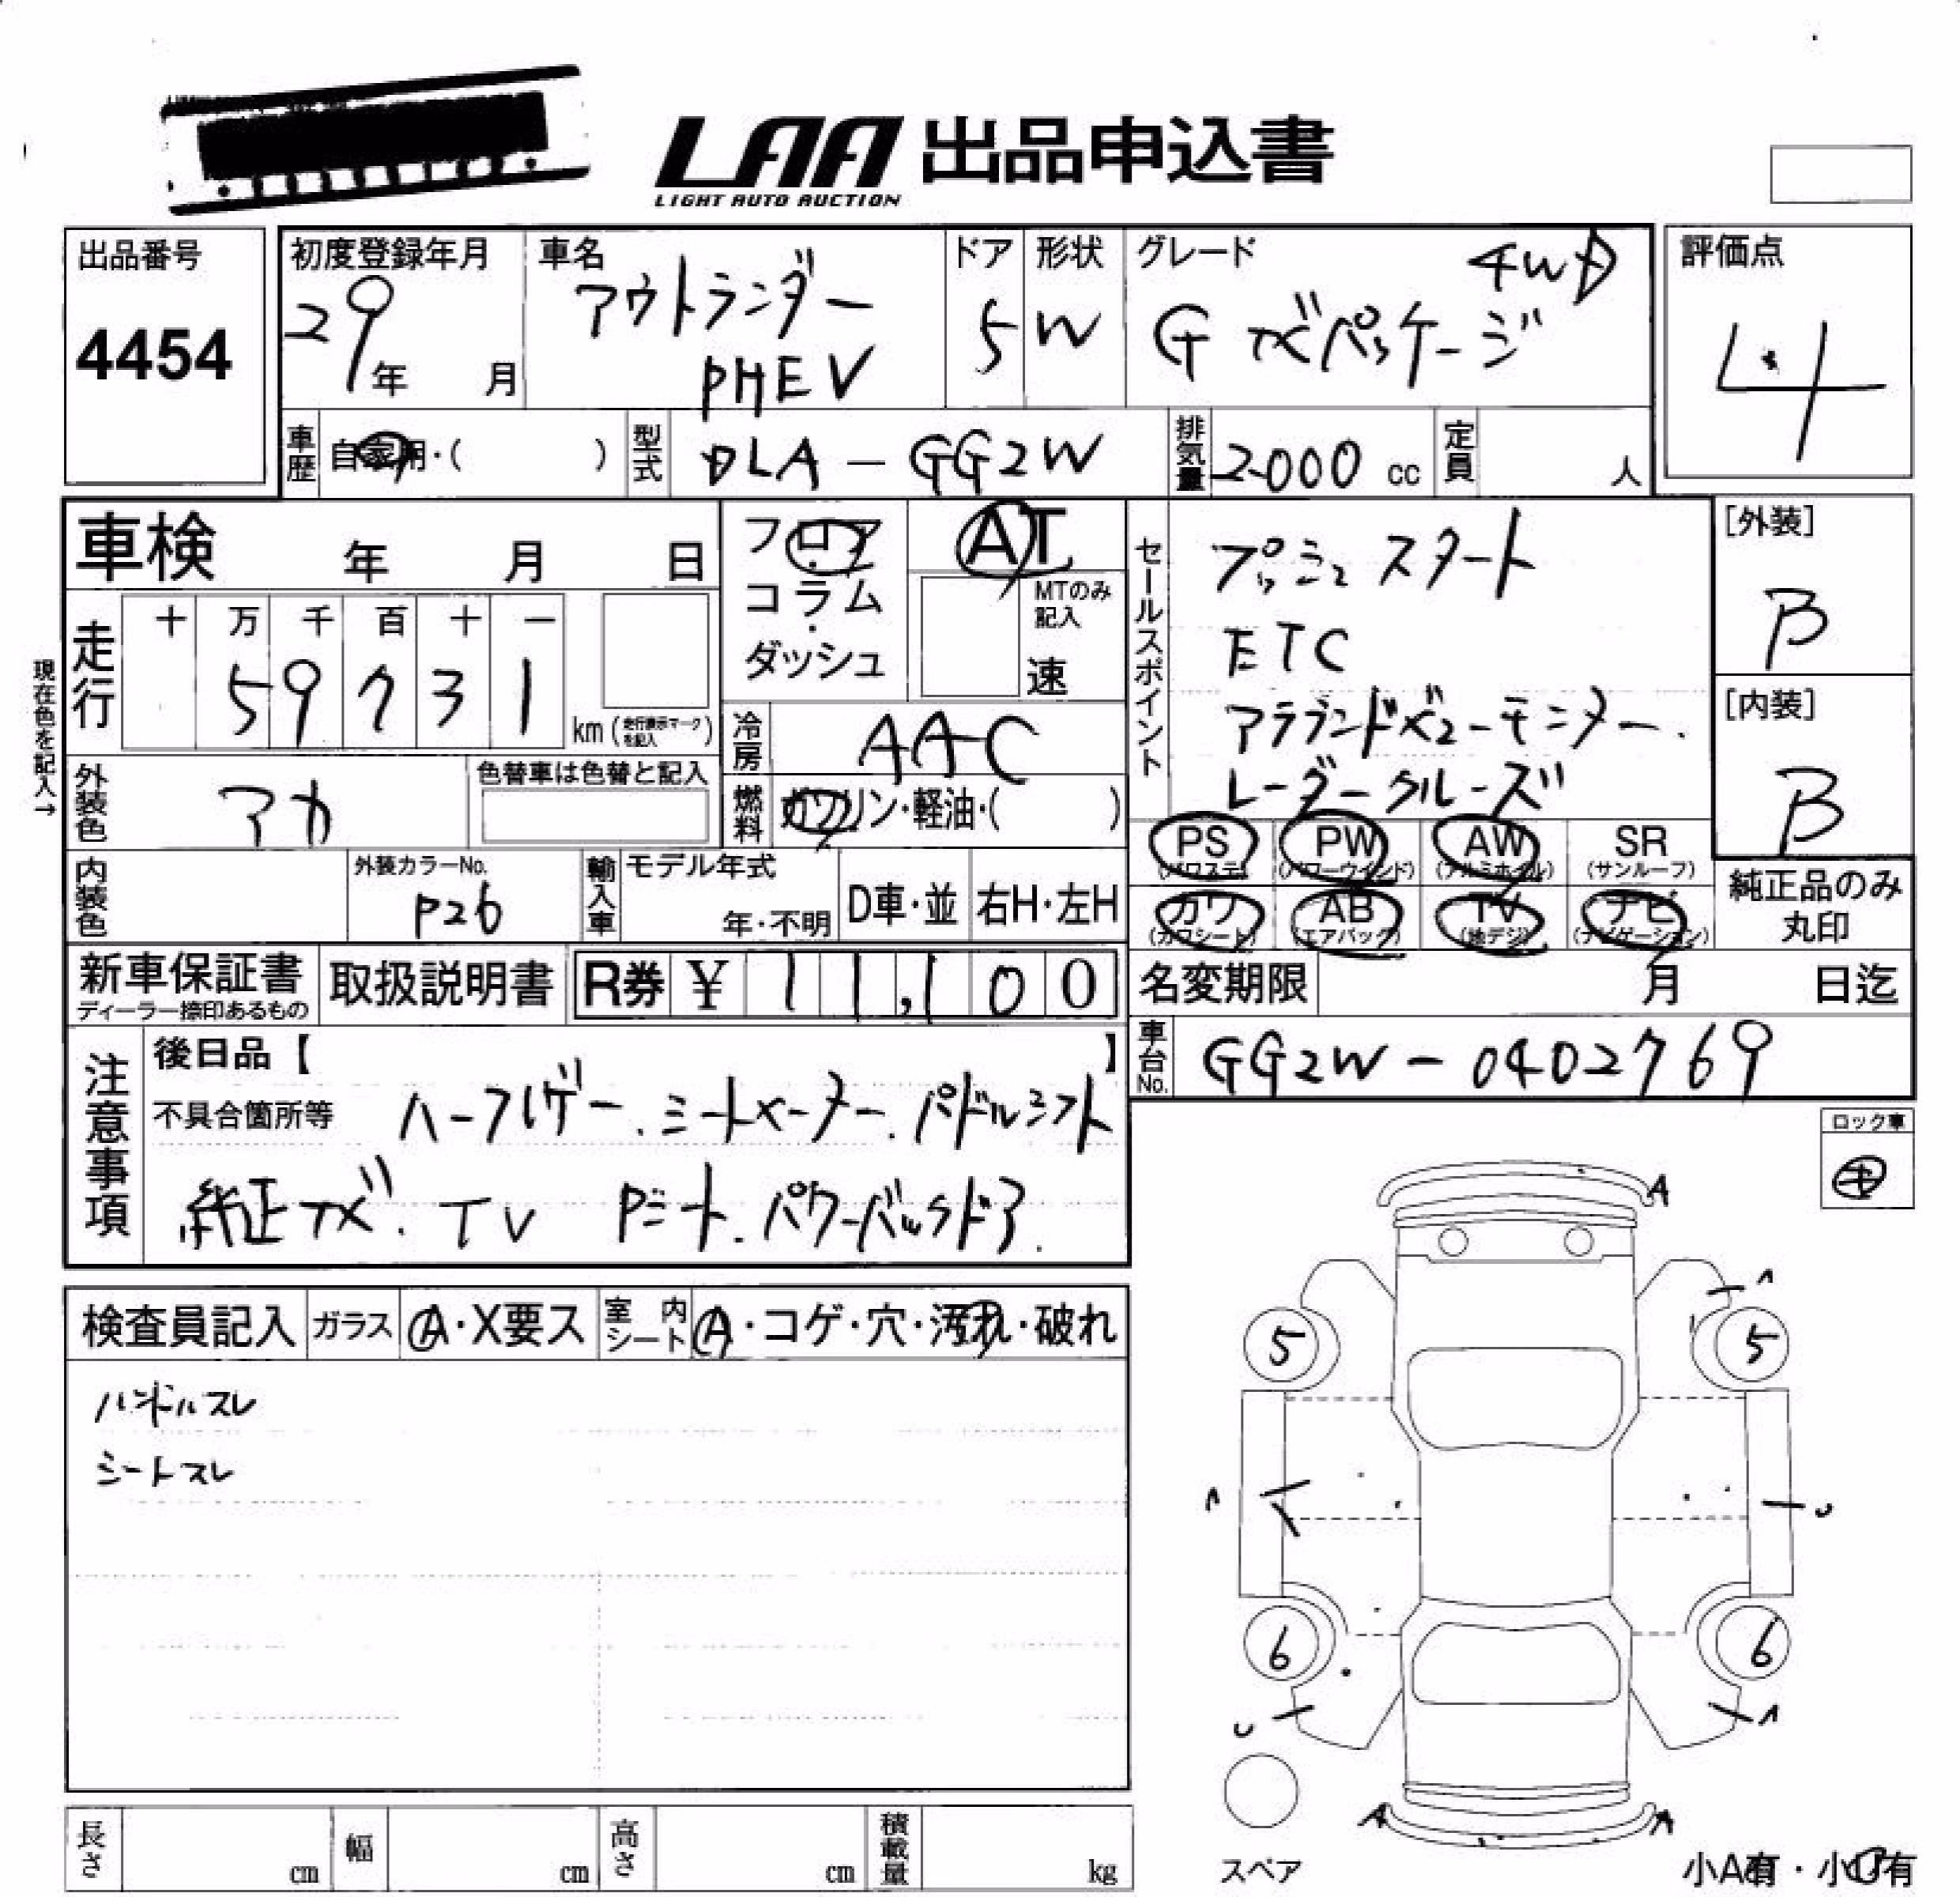 LAA 出品申込書
LIGHT AUTO AUCTION
出品番号
4454
初度登録年月
29年 月
車名
アウトランダー
PHEV
ドア
5
形状
W
グレード
4WD
G ナビパッケージ
評価点
4
車歴
自家用・( )
型式
DLA-GG2W
排気量
2000 cc
定員
人
車検 年 月 日
フロア
・
コラム
・
ダッシュ
AT
MTのみ
記入
速
セールスポイント
プッシュスタート
ETC
アラウンドビューモニター.
レーダークルーズ
[外装]
B
[内装]
B
現在色を記入→
走行
十 万 千 百 十 一
5 9 7 3 1
km (走行表示マークを記入)
冷房
AAC
外装色
アカ
色替車は色替と記入
燃料
ガソリン・軽油・( )
PS PW AW SR
(パワステ) (パワーウインド) (アルミホイル) (サンルーフ)
カワ AB TV ナビ
(カワシート) (エアバック) (地デジ) (ナビゲーション)
純正品のみ
丸印
内装色
外装カラーNo.
P26
輸入車
モデル年式
年・不明
D車・並
右H・左H
新車保証書
ディーラー捺印あるもの
取扱説明書
R券 ¥ 11,100
名変期限 月 日迄
車台No.
GG2W-0402769
注意事項
後日品【 】
不具合箇所等
ハーフレザー.シートヒーター.パドルシフト
純正ナビ.TV Pシート.パワーバックドア.
ロック車
キ
検査員記入
ガラス
A・X要ス
室内シート
A・コゲ・穴・汚れ・破れ
ハンドルスレ
シートスレ
A
A
5
5
A
U
6
6
U
A
A
A
スペア
小A有・小U有
長さ cm
幅 cm
高さ cm
積載量 kg